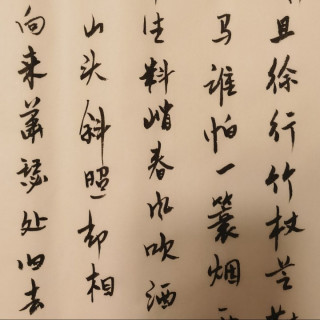 且徐行竹杖芒
马谁怕一蓑烟
生料峭春风吹酒
山头斜照却相
向来萧瑟处归去